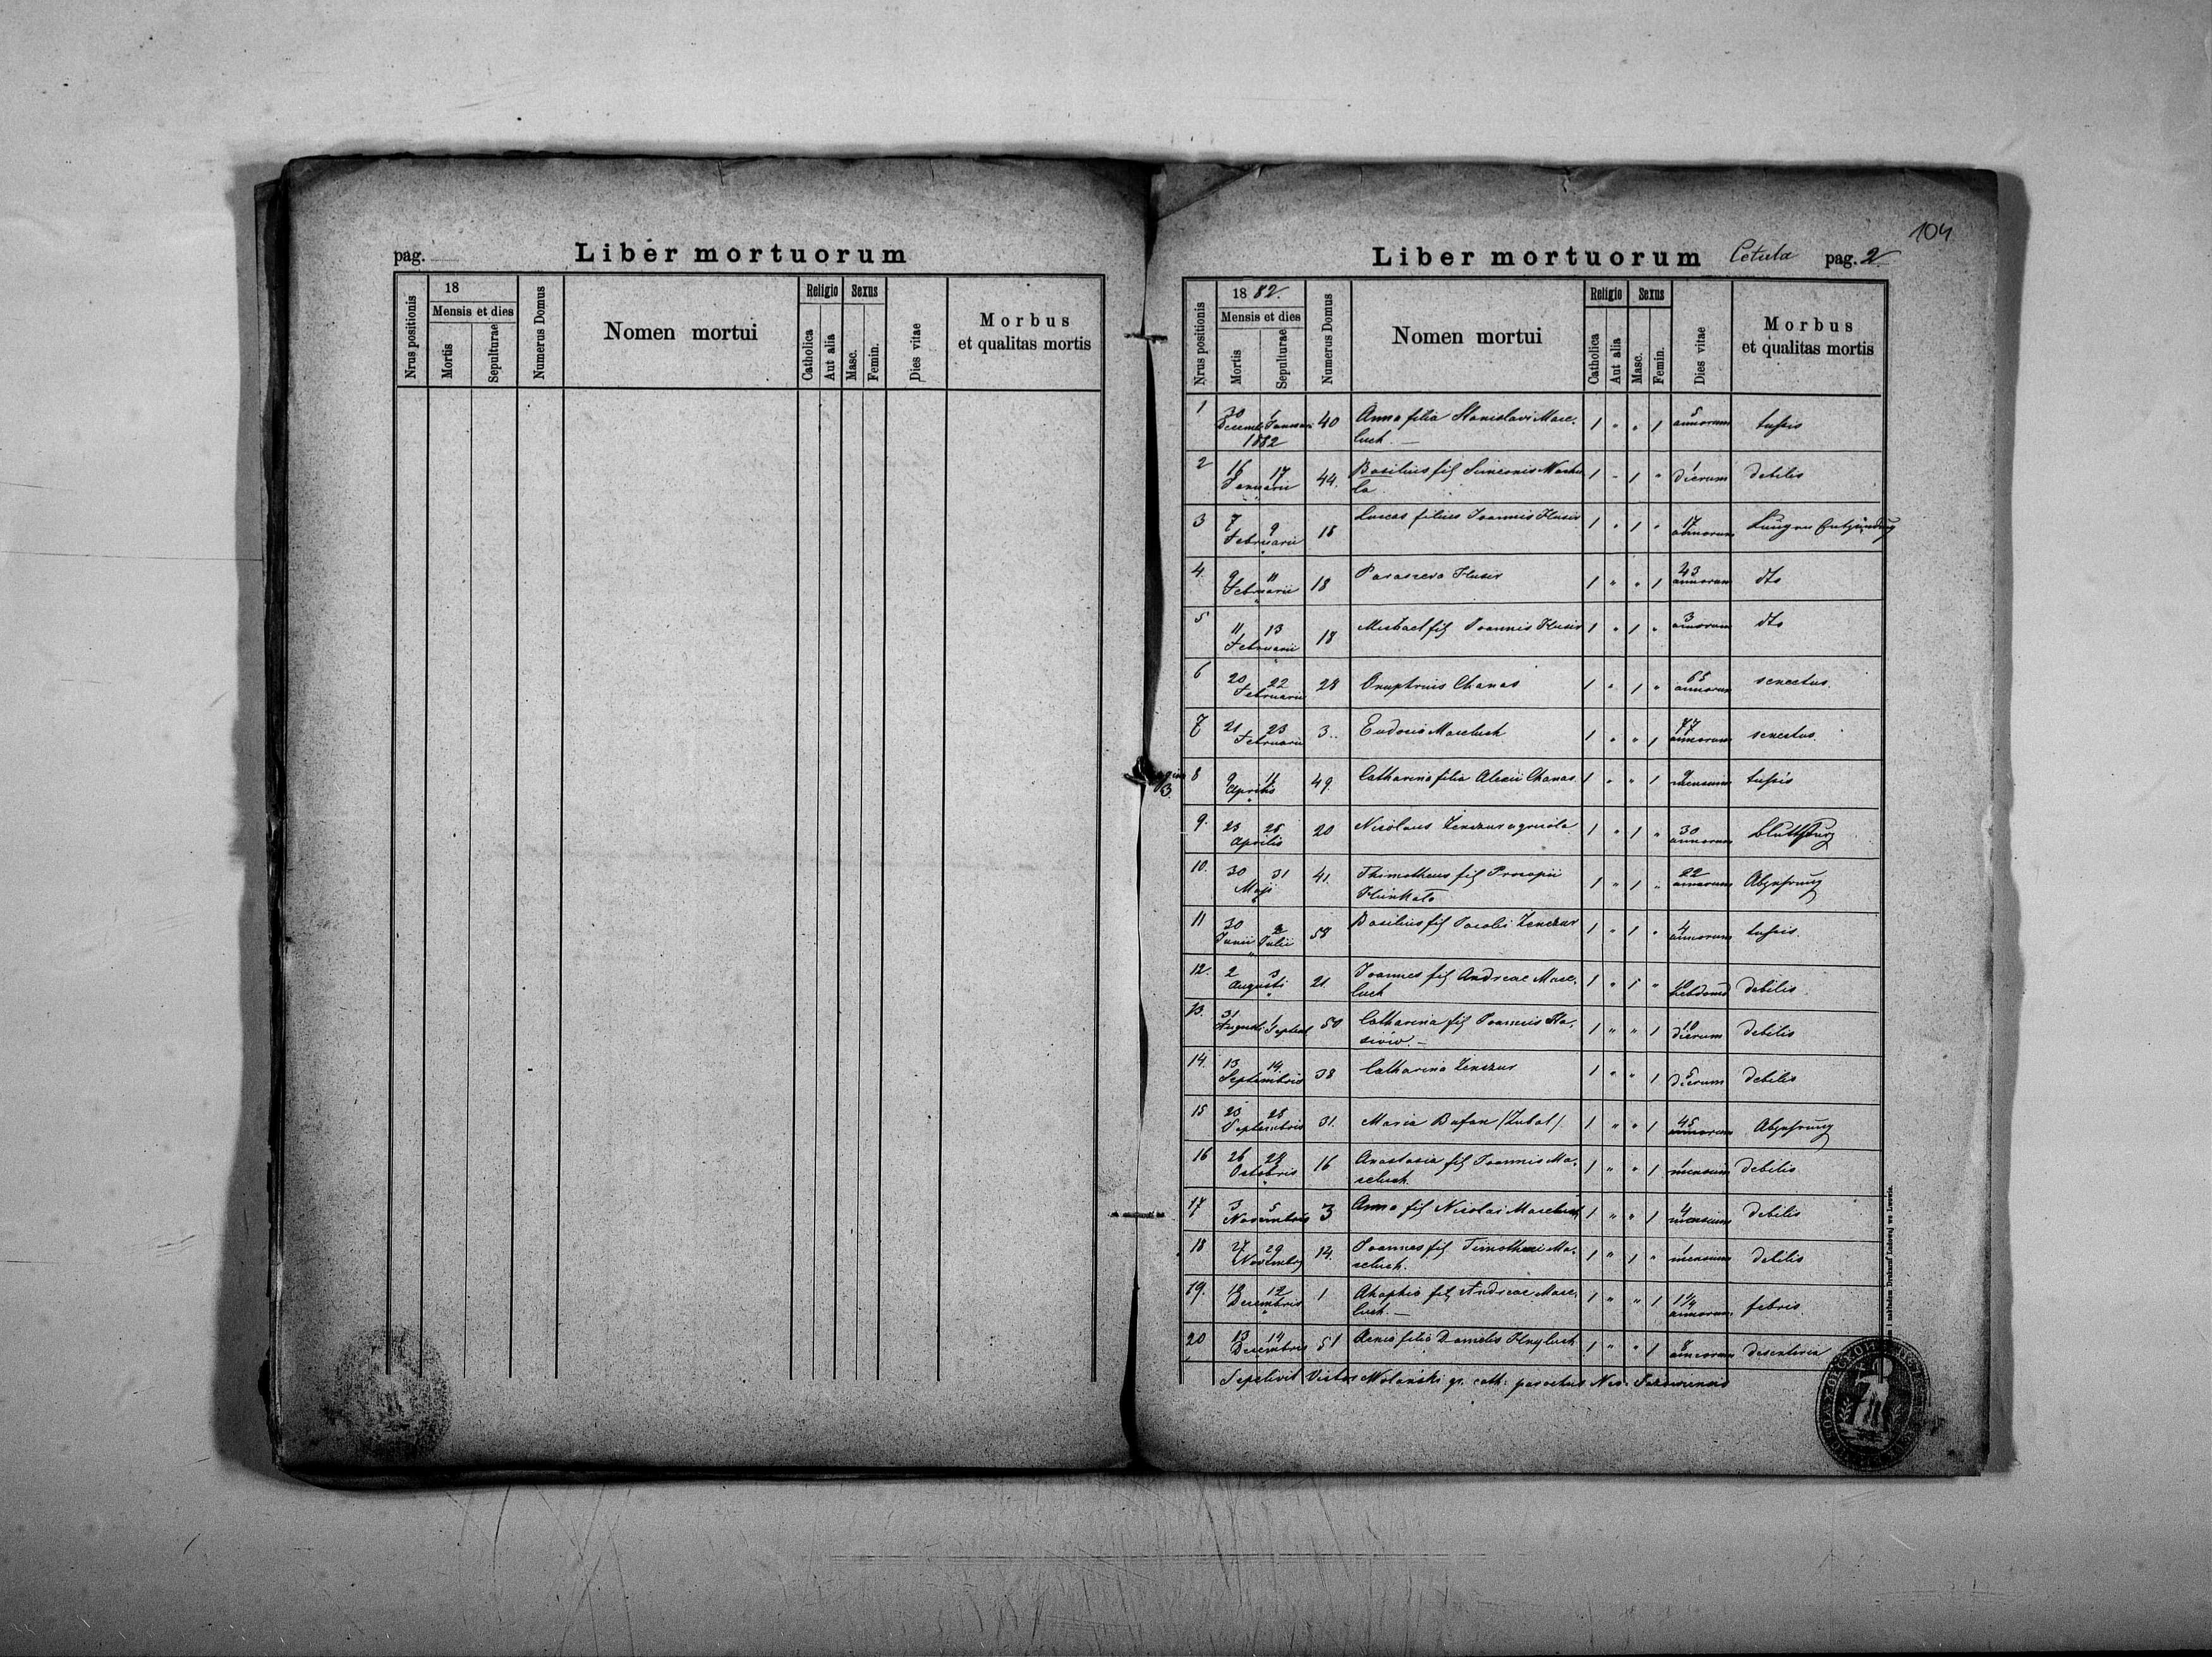 pag.
Liber mortuorum
Nrus positionis
18
Mensis et dies
Mortis
Sepulturae
Numerus Domus
Nomen mortui
Religio
Catholica
Aut alia
Sexus
Masc.
Femin.
Dies vitae
Morbus
et qualitas mortis
104
Liber mortuorum Cetula pag. 2
Nrus positionis
1882.
Mensis et dies
Mortis
Sepulturae
Numerus Domus
Nomen mortui
Religio
Catholica
Aut alia
Sexus
Masc.
Femin.
Dies vitae
Morbus
et qualitas mortis
1 30 Decemb. 1 Januari 1882 40 Anna filia Stanislavi Mase-
luch. 1 " " 1 5 annorum tussis
2 16 17 Januarii 44. Basilius fil Simeonis
la 1 - 1 " 1 dierum debilis
3 7 9 Februarii 18 Lucas filius Joannis Husir 1 " 1 " 17 annorum Lungen Entzündung
4. 9 11 Februarii 18 Parasceva Husir 1 " " 1 43 annorum dto
5 11 13 Februarii 18 Michael fil Joannis Husir 1 " 1 " 3 annorum dto
6 20 22 Februarii 28 Onuphrius Chanas 1 " 1 " 65 annorum senectus.
7 21 23 Februarii 3.. Eudosia Maseluch 1 " " 1 77 annorum senectus.
8 9 11 Aprilis 49. Catharina filia Alexii Chanas 1 " " 1 9 mensium tussis
9. 23 25 Aprilis 20 Nicolaus Zenczur agricola 1 " 1 " 30 annorum
10. 30 31 Maji 41. Thimotheus fil Procopii
1 " 1 " 22 annorum Abzehrung
11 30 Junii 2 Julii 58 Basilius fil Zenczur 1 " 1 " 4 annorum tussis.
12. 2 3 Augusti 21. Joannes fil Andreae Mase-
luch 1 " 1 " hebdomad debilis
13. 31 Augusti 1 Septemb 50 Catharina fil Joannis Sta-
1 " " 1 10 dierum debilis
14. 13 14. Septembris 38 Catharina Zenczur 1 " " 1 5 dierum debilis
15 23 25 Septembris 31. Maria Bufan /Zubal/. 1 " " 1 45 annorum Abzehrung
16 26 28 Octobris 16 Anastasia fil Joannis Ma-
seluch. 1 " " 1 1 mensium debilis
17 3 5 Novembris 3 Anna fil Nicolai Maseluch 1 " " 1 4 mensium debilis
18 27 29 Novembr 14. Joannes fil Timothaei Ma-
seluch. 1 " 1 " 1 mensium debilis
19. 12 Decembris 1 Ahaphia fil Andreae Mase-
luch. 1 " " 1 1 1/4 annorum febris
20 13 14 Decembris 51 filia Danielis 1 " " 1 annorum desenteria
Sepelivit Victor Wolański gr. cath. parochus